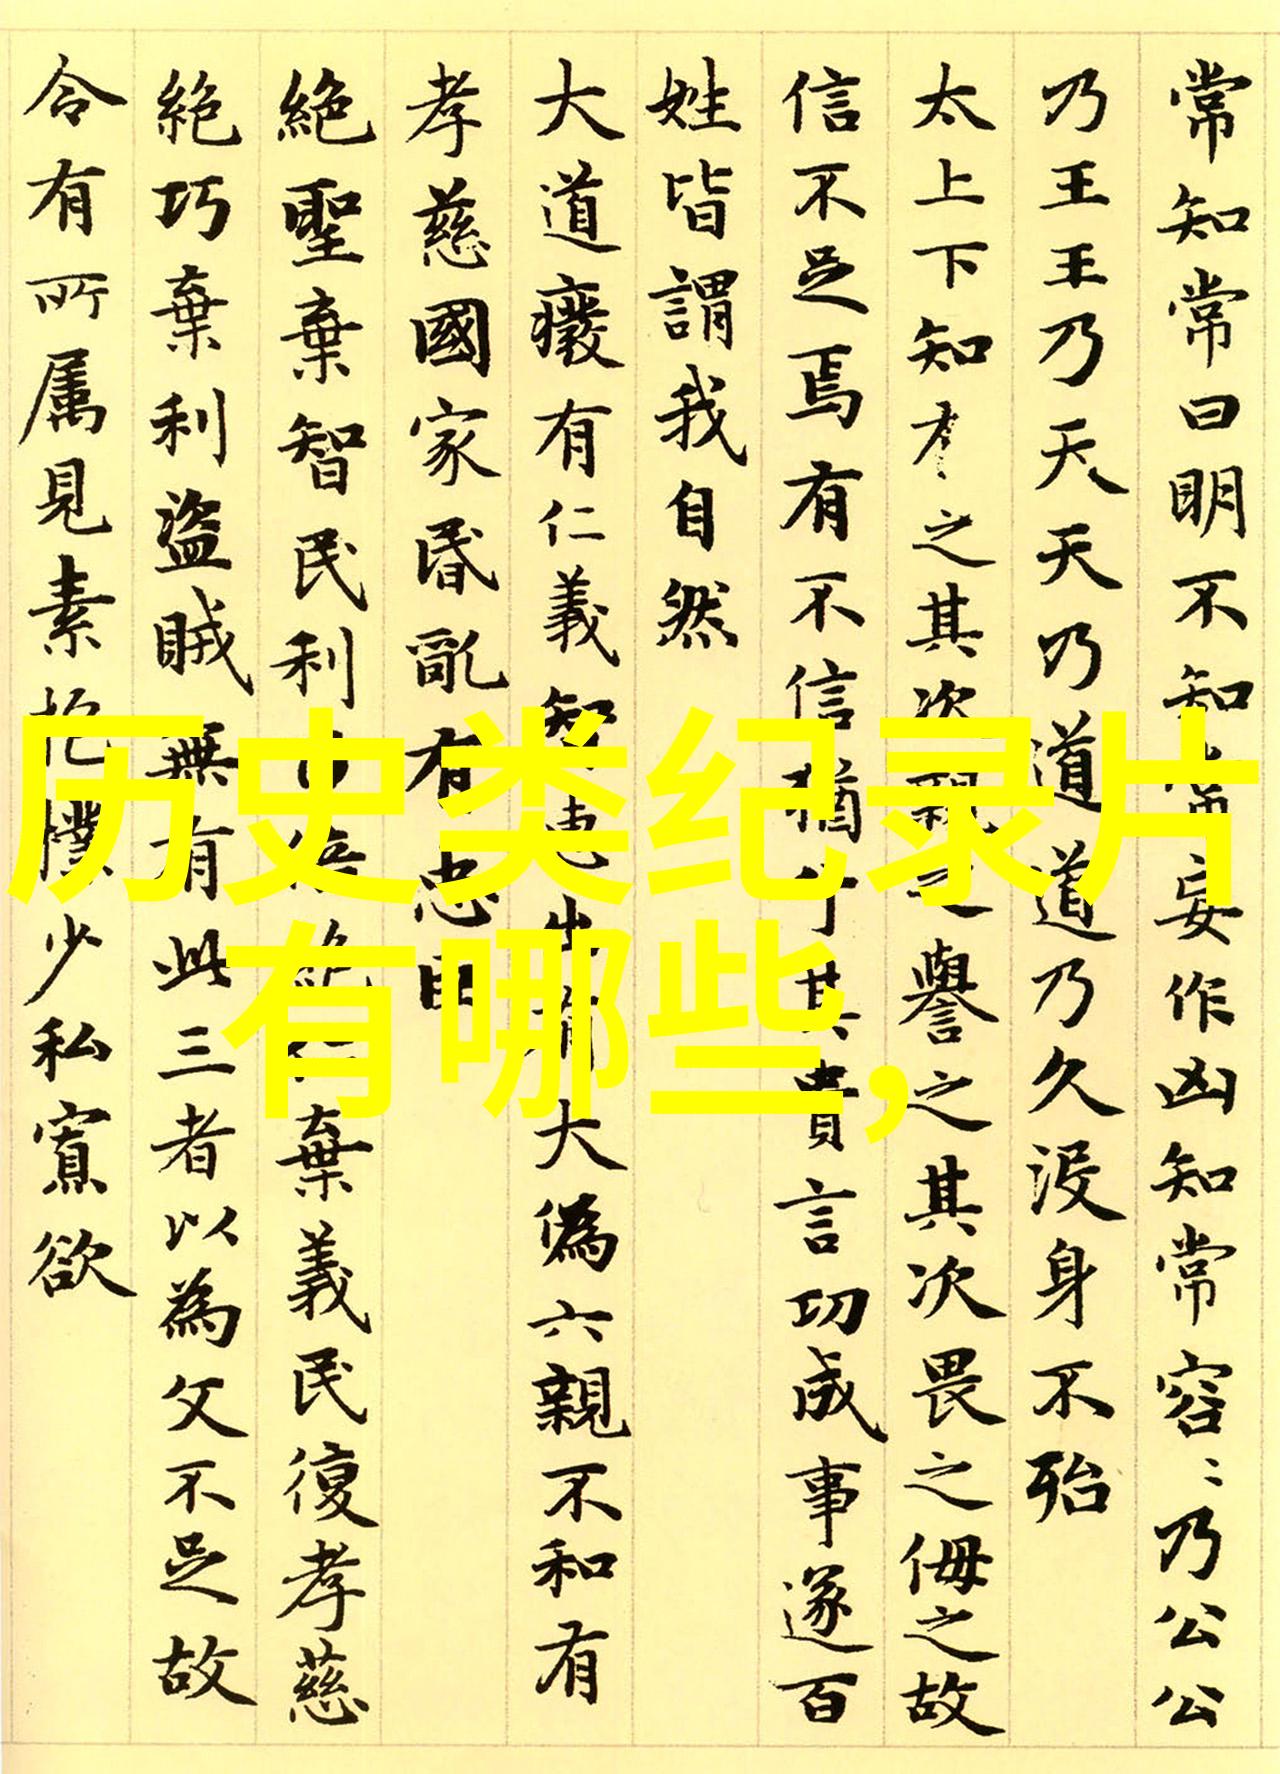 常知常曰明不知常妄作凶知常容〻乃公公
乃王王乃天天乃道道乃久没身不殆
太上下知有之其次親之譽之其次畏之侮之故
信不足焉有不信猶兮其貴言功成事遂百
姓皆謂我自然
大道癈有仁義智惠出有大偽六親不和有
孝慈國家昬亂有忠臣
絶聖棄智民利百倍絶仁棄義民復孝慈
絶巧棄利盜賊無有此三者以為文不足故
令有所属見素抱樸少私寡欲
历史类纪录片
有哪些,